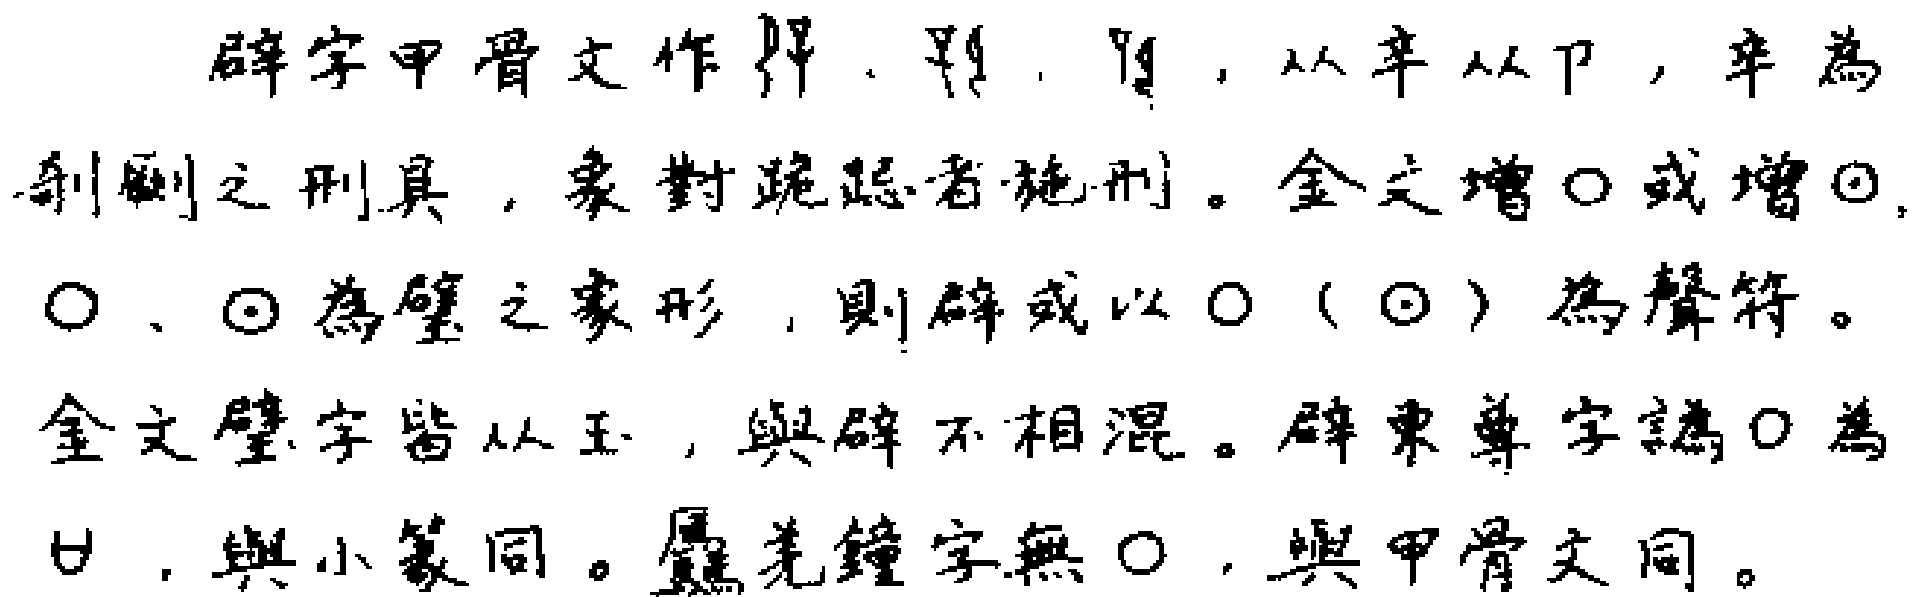 辟字甲骨文作、、，从辛从卩，辛為
剞劂之刑具，象對跪跽者施刑。金文增○或增⊙，
○、⊙為璧之象形，則辟或以○（⊙）為聲符。
金文璧字皆从玉，與辟不相混。辟東尊字譌○為
ㅂ，與小篆同。羌鐘字無○，與甲骨文同。